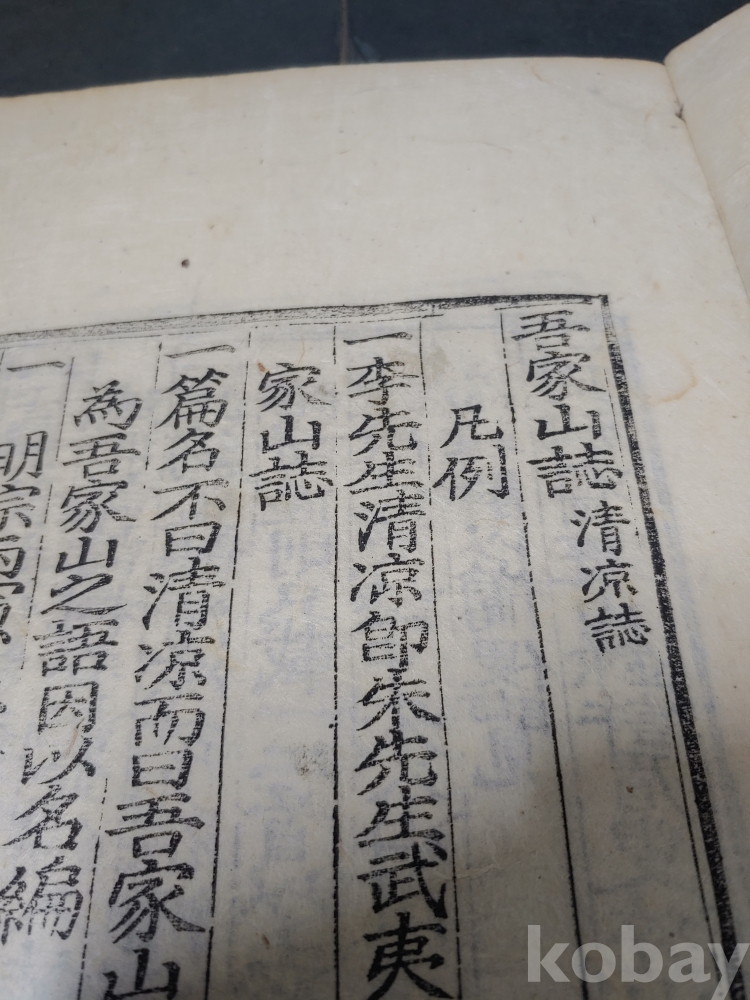 吾家山誌清凉誌
凡例
一李先生清凉卽朱先生武夷
家山誌
一篇名不曰清凉而曰吾家山
為吾家山之語因以名編
一
明宗
kobay